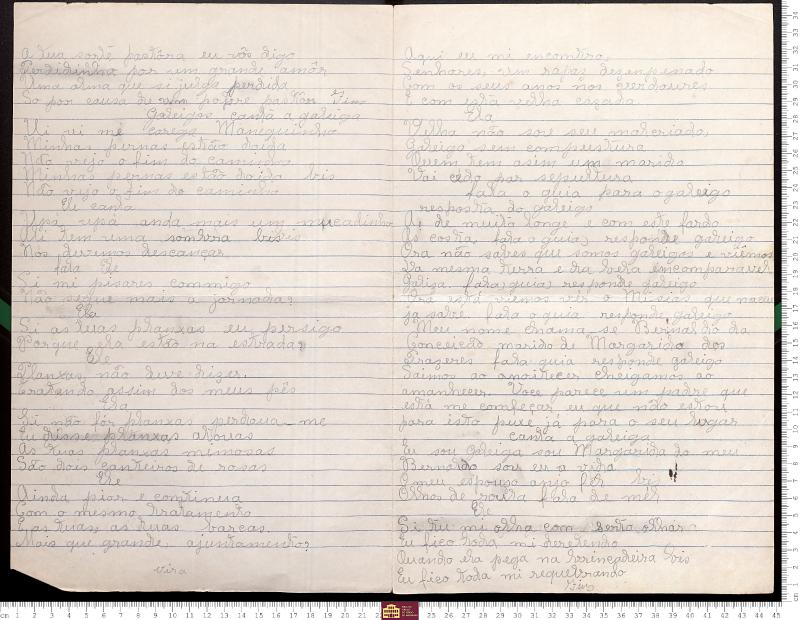 A tua sorte pastora eu vos digo
Perdidinha por um grande amôr
Uma alma que si julga perdida
So por causa de um pobre pastor Fim
Galeigos canta a galeiga
Ui ui me carega Maneguinho
Minhas pernas estão doida
Não vejo o fim do caminho
Minhas pernas estão doido bis
Não vejo o fim do caminho
Ele canta
Upa upa anda mais um mucadinho
Ali tem uma sombra bis
Nos devemos descançar
fala Ele
Si mi pisares commigo
Não segue mais a jornada?
Ela
Si as tuas planxas eu persigo
Porque ela estão na estrada?
Ele
Planxas não deve dizer.
Tratando assim dos meus pês
Ela
Si não for planxas perdoua-me
Eu disse planxas atouas
As tuas planxas mimosas
São dois canteiros de rosas
Ele
Ainda pior e continua
Com o mesmo tratamento
E as tuas, as tuas barcas.
Mais que grande, ajuntamento?
vira
Aqui eu mi encontro,
Senhores, um rapas desenpenado
Com os seus anos nos verdoures
E com esta velha casada
Ela
Velha não sou seu malcriado,
Galeigo sem compustura
Quem tem asim um marido
Vai cedo par sepultura
fala o guia para o galeigo
resposta do galeigo
Ai de muito longe e com este fardo
As costa, fala o guia, responde galeigo
Ora não sabes que somos galeigos e viêmos
Da mesma terra e dra volta encomparavel
Galiza. fala guia, responde galeigo
Pois está viemos ver o Misias que naceu
ja sabe. fala o guia responde galeigo
Meu nome chama-se Bernaldo da
Conceição marido de Margarida dos
Prazeres fala guia responde galeigo
Saimos ao anoitecer cheigamos ao
amanhecer. Voce parece um padre que
está me comfeçar eu que não estou
para isto puxe já para o seu lugar
canta a galeiga
Eu sou Galeiga sou Margarida do meu
Bernaldo sou eu a vida
O meu espouso anjo fiz bis
Olhos de roulta fala de mer
Ele
Si tu mi olha com serto olhar
Eu fico toda mi deretendo
Quando ela pega na brincadeira bis
Eu fico toda mi requebrando
Vira